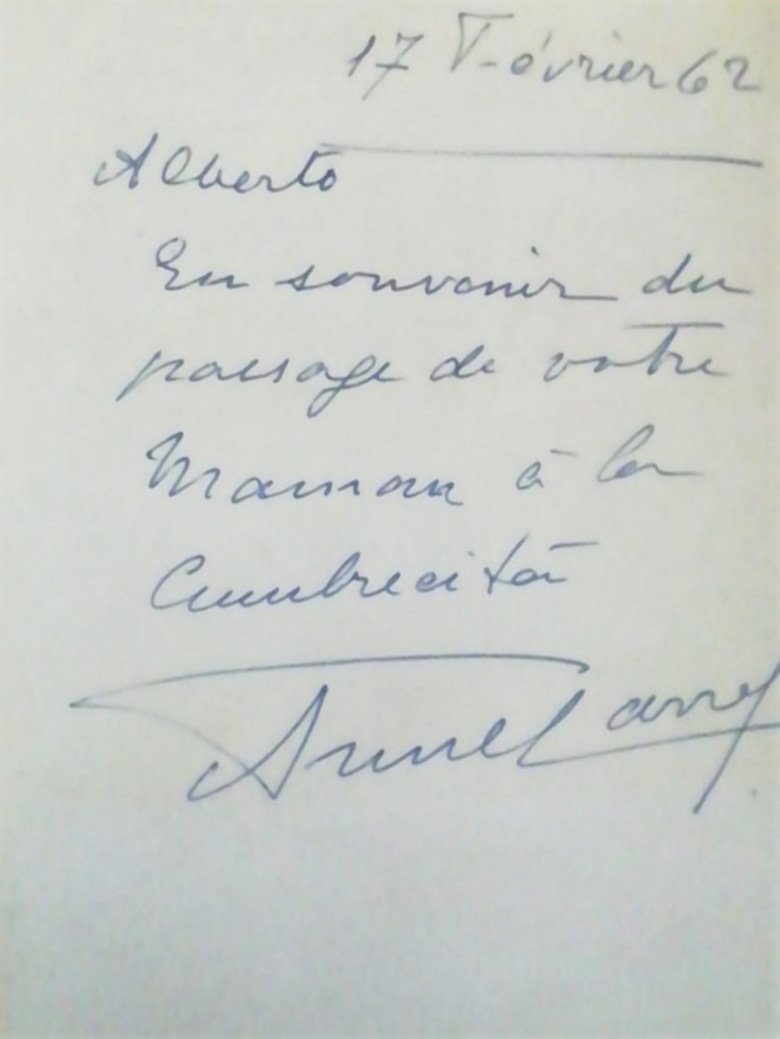 17 Février 62
Alberto
En souvenir du
passage de votre
Maman à la
Cumbrecità